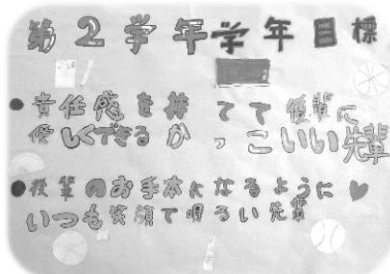 第2学年学年目標
●責任感を持てて後輩に
優しくできるかっこいい先輩
●後輩のお手本になるように♥
いつも笑顔で明るい先輩